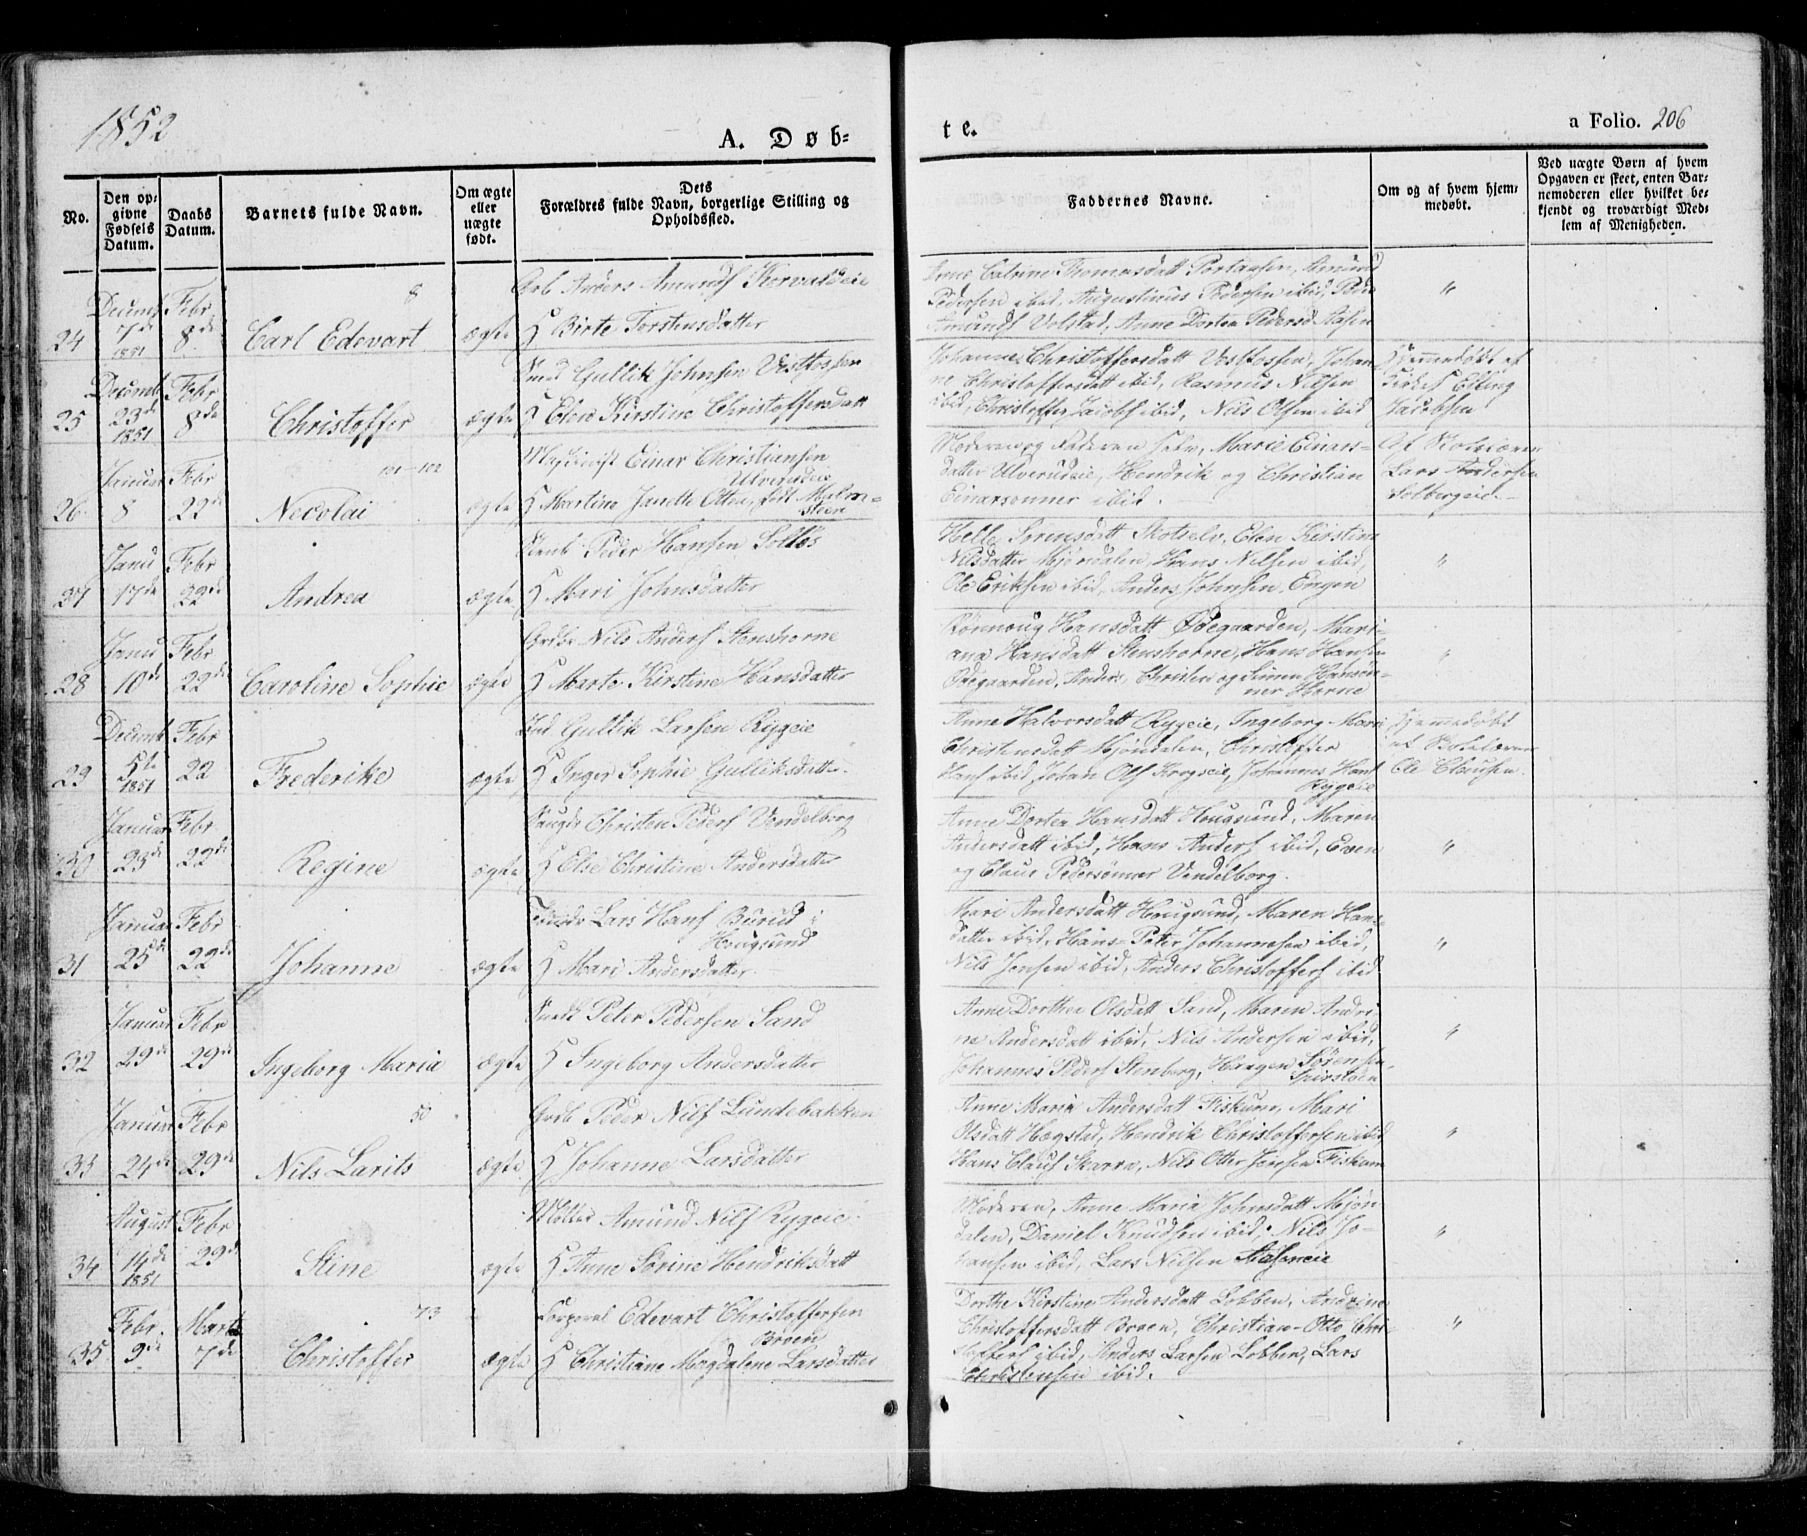 1852
A. Døb-
te.
a Folio. 206
No.
Den op-
givne
Fødsels
Datum.
Daabs
Datum.
Barnets fulde Navn.
Om ægte
eller
uægte
født.
Dets
Forældres fulde Navn, borgerlige Stilling og
Opholdssted.
Faddernes Navne.
Om og af hvem hjem-
medøbt.
Ved uægte Børn af hvem
Opgaven er skeet, enten Bar-
nemoderen eller hvilket be-
kjendt og troværdigt Med-
lem af Menigheden.
24
Decemb
7de
1851
Febr
8de
8
Carl Edevart
ægte
Anders Amunds Korvaldeie
H Birte Torstensdatter
Catrine Thomasdatt Portaasen, Amund
Pedersen ibid, Augustinus Pedersen ibid, Peder
Amunds Volstad, Anne Dortea Pedersd Aasen
"
25
Decemb
23de
1851
Febr
8de
Christoffer
ægte
Gullik Johnsen Vestfossen
H Elene Kirstine Christoffersdatt
Johanne Christoffersdatt Vestfossen, Johan-
ne Christoffersdatt ibid, Rasmus Nilsen
ibid, Christoffer Jacobs ibid, Nils Olsen ibid
Hjemmedøbt af
Elling
Jacobsen
26
Januar
8
Febr
22de
101-102
Nicolai
ægte
Einar Christiansen
Ulverudeie
H Martine Janette Otten, født Malm-
steen
Moderen og Faderen selv, Marie Einars-
datter Ulverudeie, Hendrik og Christian
Einarsønner ibid.
Af Skolelæreren
Lars Andersen
Solbergeie
27
Janu
17de
Febr
22de
Andrea
ægte
Peder Hansen Solløs
H Mari Johnsdatter
Helle Sørensdatt Skotselv, Elen Kirstine
Nilsdatter Mjøndalen, Hans Nilsen ibid,
Ole Eriksen ibid, Anders Johnsen Engen
"
28
Janu
10de
Febr
22de
Caroline Sophie
ægte
Nils Anders Stenshorne
H Marte Kirstine Hansdatter
Rønnaug Hansdatt Ødegaarden, Mari-
ana Hansdatt Stenshorne, Hans Hansen
Ødegaarden, Anders Christen og Simen Hansøn-
ner Horne
"
29
Decemb
5te
1851
Febr
22
Frederike
ægte
Ind Gullik Larsen Rygeie
H Inger Sophie Gulliksdatter
Anne Halvorsdatt Rygeie, Ingeborg Mari
Christensdatt Mjøndalen, Christoffer
Hans ibid, Johan Ols Krogseie, Johannes Hans
Rygeie
Hjemmedøbt
af Skolelæreren
Ole Clausen.
30
Januar
23de
Febr
22de
Regine
ægte
Christen Peders Vendelborg
H Else Christine Andersdatter
Anne Dortea Hansdatt Hougsund, Maren
Andersdatt ibid, Hans Anders ibid, Even
og Claus Pedersønner Vendelborg.
"
31
Januar
25de
Febr
22de
Johanne
ægte
Lars Hans Burud i
Hougsund
H Mari Andersdatter
Mari Andersdatt Hougsund, Maren Hans-
datter ibid, Hans Peter Johannesen ibid,
Nils Jensen ibid, Anders Christoffers ibid
"
32
Januar
29de
Febr
29de
Ingeborg Maria
ægte
Peter Pedersen Sand
H Ingeborg Andersdatter
Anne Dorthea Olsdatt Sand, Maren Andri-
ne Andersdatt ibid, Nils Andersen ibid,
Johannes Peders Stenberg, Haagen Sørensen
"
33
Januar
24de
Febr
29de
50
Nils Larits
ægte
Peder Nils Lundebakken
H Johanne Larsdatter
Anne Maria Andersdatt Fiskum, Mari
Olsdatt Hægstad, Hendrik Christoffersen ibid
Hans Claus Skarra, Nils Otter Jensen Fiskum
"
34
August
14de
1851
Febr
29de
Stine
ægte
Møller Amund Nils Rygeie
H Anne Sørine Hendriksdatt
Moderen, Anne Maria Johnsdatt Mjøn-
dalen, Daniel Knudsen ibid, Nils Jo-
hansen ibid, Lars Nilsen Aaseneie
"
35
Febr.
9de
Marts
7de
73
Christoffer
ægte
Korporal Edevart Christoffersen
Broen
H Christiane Magdalene Larsdatter
Dorthe Kirstine Andersdatt Lobben, Andrine
Christoffersdatt Broen, Christian Otto Chri-
stoffers ibid, Anders Larsen Lobben, Lars
Christensen ibid.
"